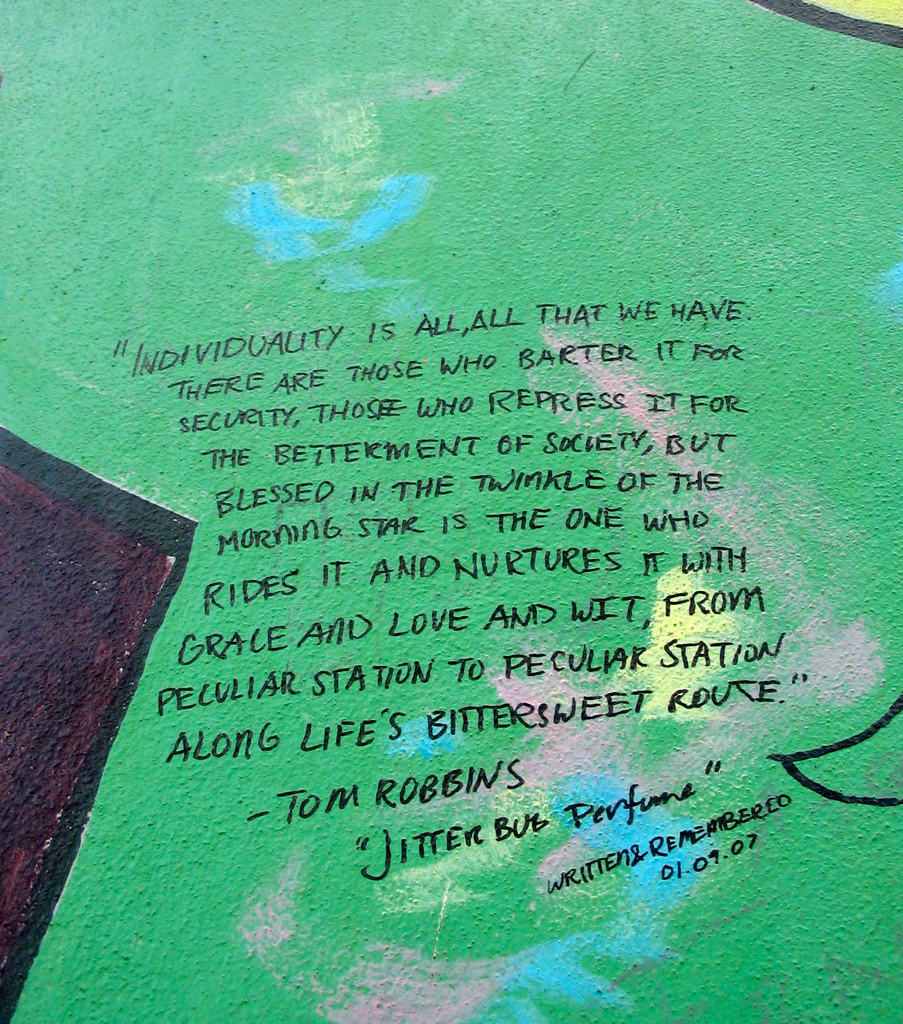 "INDIVIDUALITY IS ALL, ALL THAT WE HAVE.
THERE ARE THOSE WHO BARTER IT FOR
SECURITY, THOSE WHO REPRESS IT FOR
THE BETTERMENT OF SOCIETY, BUT
BLESSED IN THE TWINKLE OF THE
MORNING STAR IS THE ONE WHO
RIDES IT AND NURTURES IT WITH
GRACE AND LOVE AND WIT, FROM
PECULIAR STATION TO PECULIAR STATION
ALONG LIFE'S BITTERSWEET ROUTE."
-TOM ROBBINS
"JITTER BUG Perfume"
WRITTEN & REMEMBERED
01.09.07